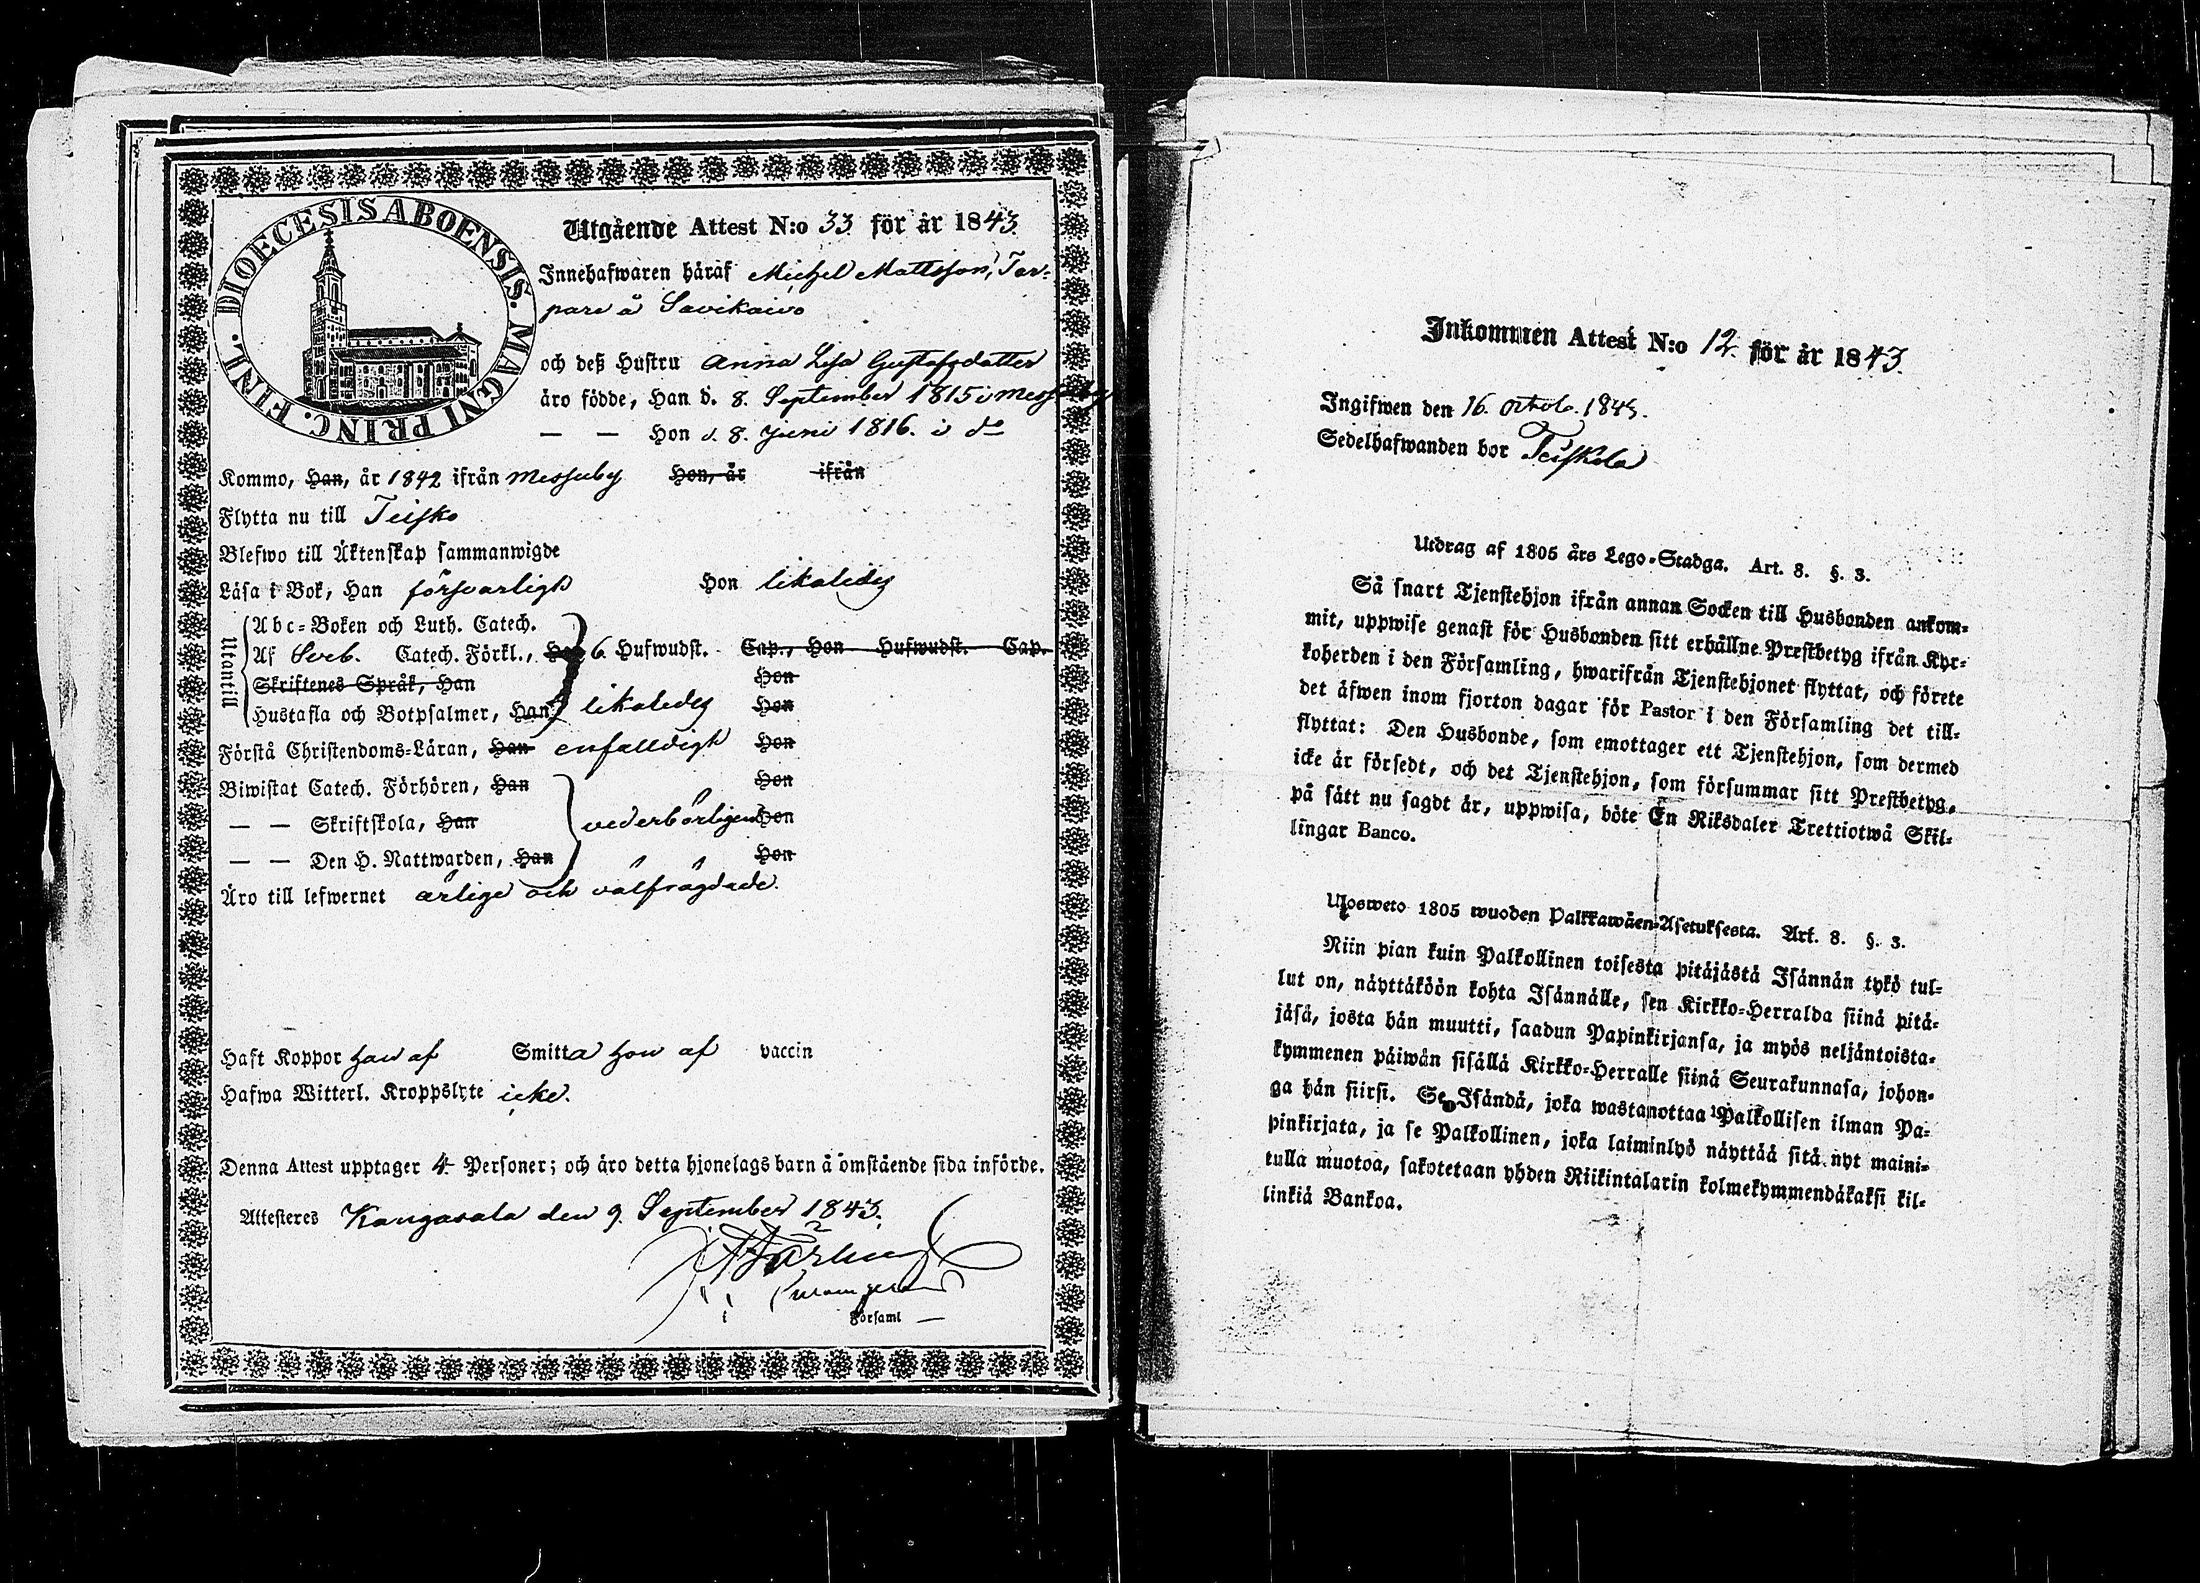 DIOECESIS ABOENSIS. MAGNI PRINC. FINL.
Utgående Attest N:o 33 för år 1843.
Innehafwaren häraf Michel Mattsson, Tor-
pare å Savikaivo
och deß Hustru Anna Lisa Gustafsdotter
äro födde, Han d. 8. September 1815 i Messuby
— — Hon d. 8. Juni 1816. i do
Kommo, Han, år 1842 ifrån Messuby Hon, år ifrån
Flytta nu till Teisko
Blefwo till Äktenskap sammanwigde
Läsa i Bok, Han försvarligt Hon likaledes
Utantill
Abc-Boken och Luth. Catech.
Af Sveb. Catech. Förkl., Han 6 Hufwudst. Cap., Hon Hufwudst. Cap.
Skriftenes Språk, Han Hon
Hustafla och Botpsalmer, Han likaledes Hon
Förstå Christendoms-Läran, Han enfalldigt Hon
Biwistat Catech. Förhören, Han Hon
— — Skriftskola, Han vederbörligen Hon
— — Den H. Nattwarden, Han Hon
Äro till lefwernet ärlige och välfrägdade.
Haft Koppor han af Smitta hon af vaccin
Hafwa Witterl. Kroppslyte icke.
Denna Attest upptager 4 Personer; och äro detta hjonelags barn å omstående sida införde.
Attesteres Kangasala den 9. September 1843.
Församl —
Inkommen Attest N:o 12. för år 1843.
Ingifwen den 16. octob. 1843.
Sedelhafwanden bor Teiskola
Utdrag af 1805 års Lego-Stadga. Art. 8. §. 3.
Så snart Tjenstehjon ifrån annan Socken till Husbonden ankom-
mit, uppwise genast för Husbonden sitt erhållne Prestbetyg ifrån Kyr-
koherden i den Församling, hwarifrån Tjenstehjonet flyttat, och förete
det äfwen inom fjorton dagar för Pastor i den Församling det till-
flyttat: Den Husbonde, som emottager ett Tjenstehjon, som dermed
icke är försedt, och det Tjenstehjon, som försummar sitt Prestbetyg,
på sätt nu sagdt är, uppwisa, böte En Riksdaler Trettiotwå Skil-
lingar Banco.
Ulosweto 1805 wuoden Palkkawäen-Asetuksesta. Art. 8. §. 3.
Niin pian kuin Palkollinen toisesta pitäjästä Isännän tykö tul-
lut on, näyttäköön kohta Isännälle, sen Kirkko-Herralda siinä pitä-
jäsä, josta hän muutti, saadun Papinkirjansa, ja myös neljäntoista-
kymmenen päiwän sisällä Kirkko-Herralle siinä Seurakunnasa, johon-
ga hän siirsi. Se Isändä, joka wastanottaa Palkollisen ilman Pa-
pinkirjata, ja se Palkollinen, joka laiminlyö näyttää sitä nyt maini-
tulla muotoa, sakotetaan yhden Riikintalarin kolmekymmendäkaksi kil-
linkiä Bankoa.